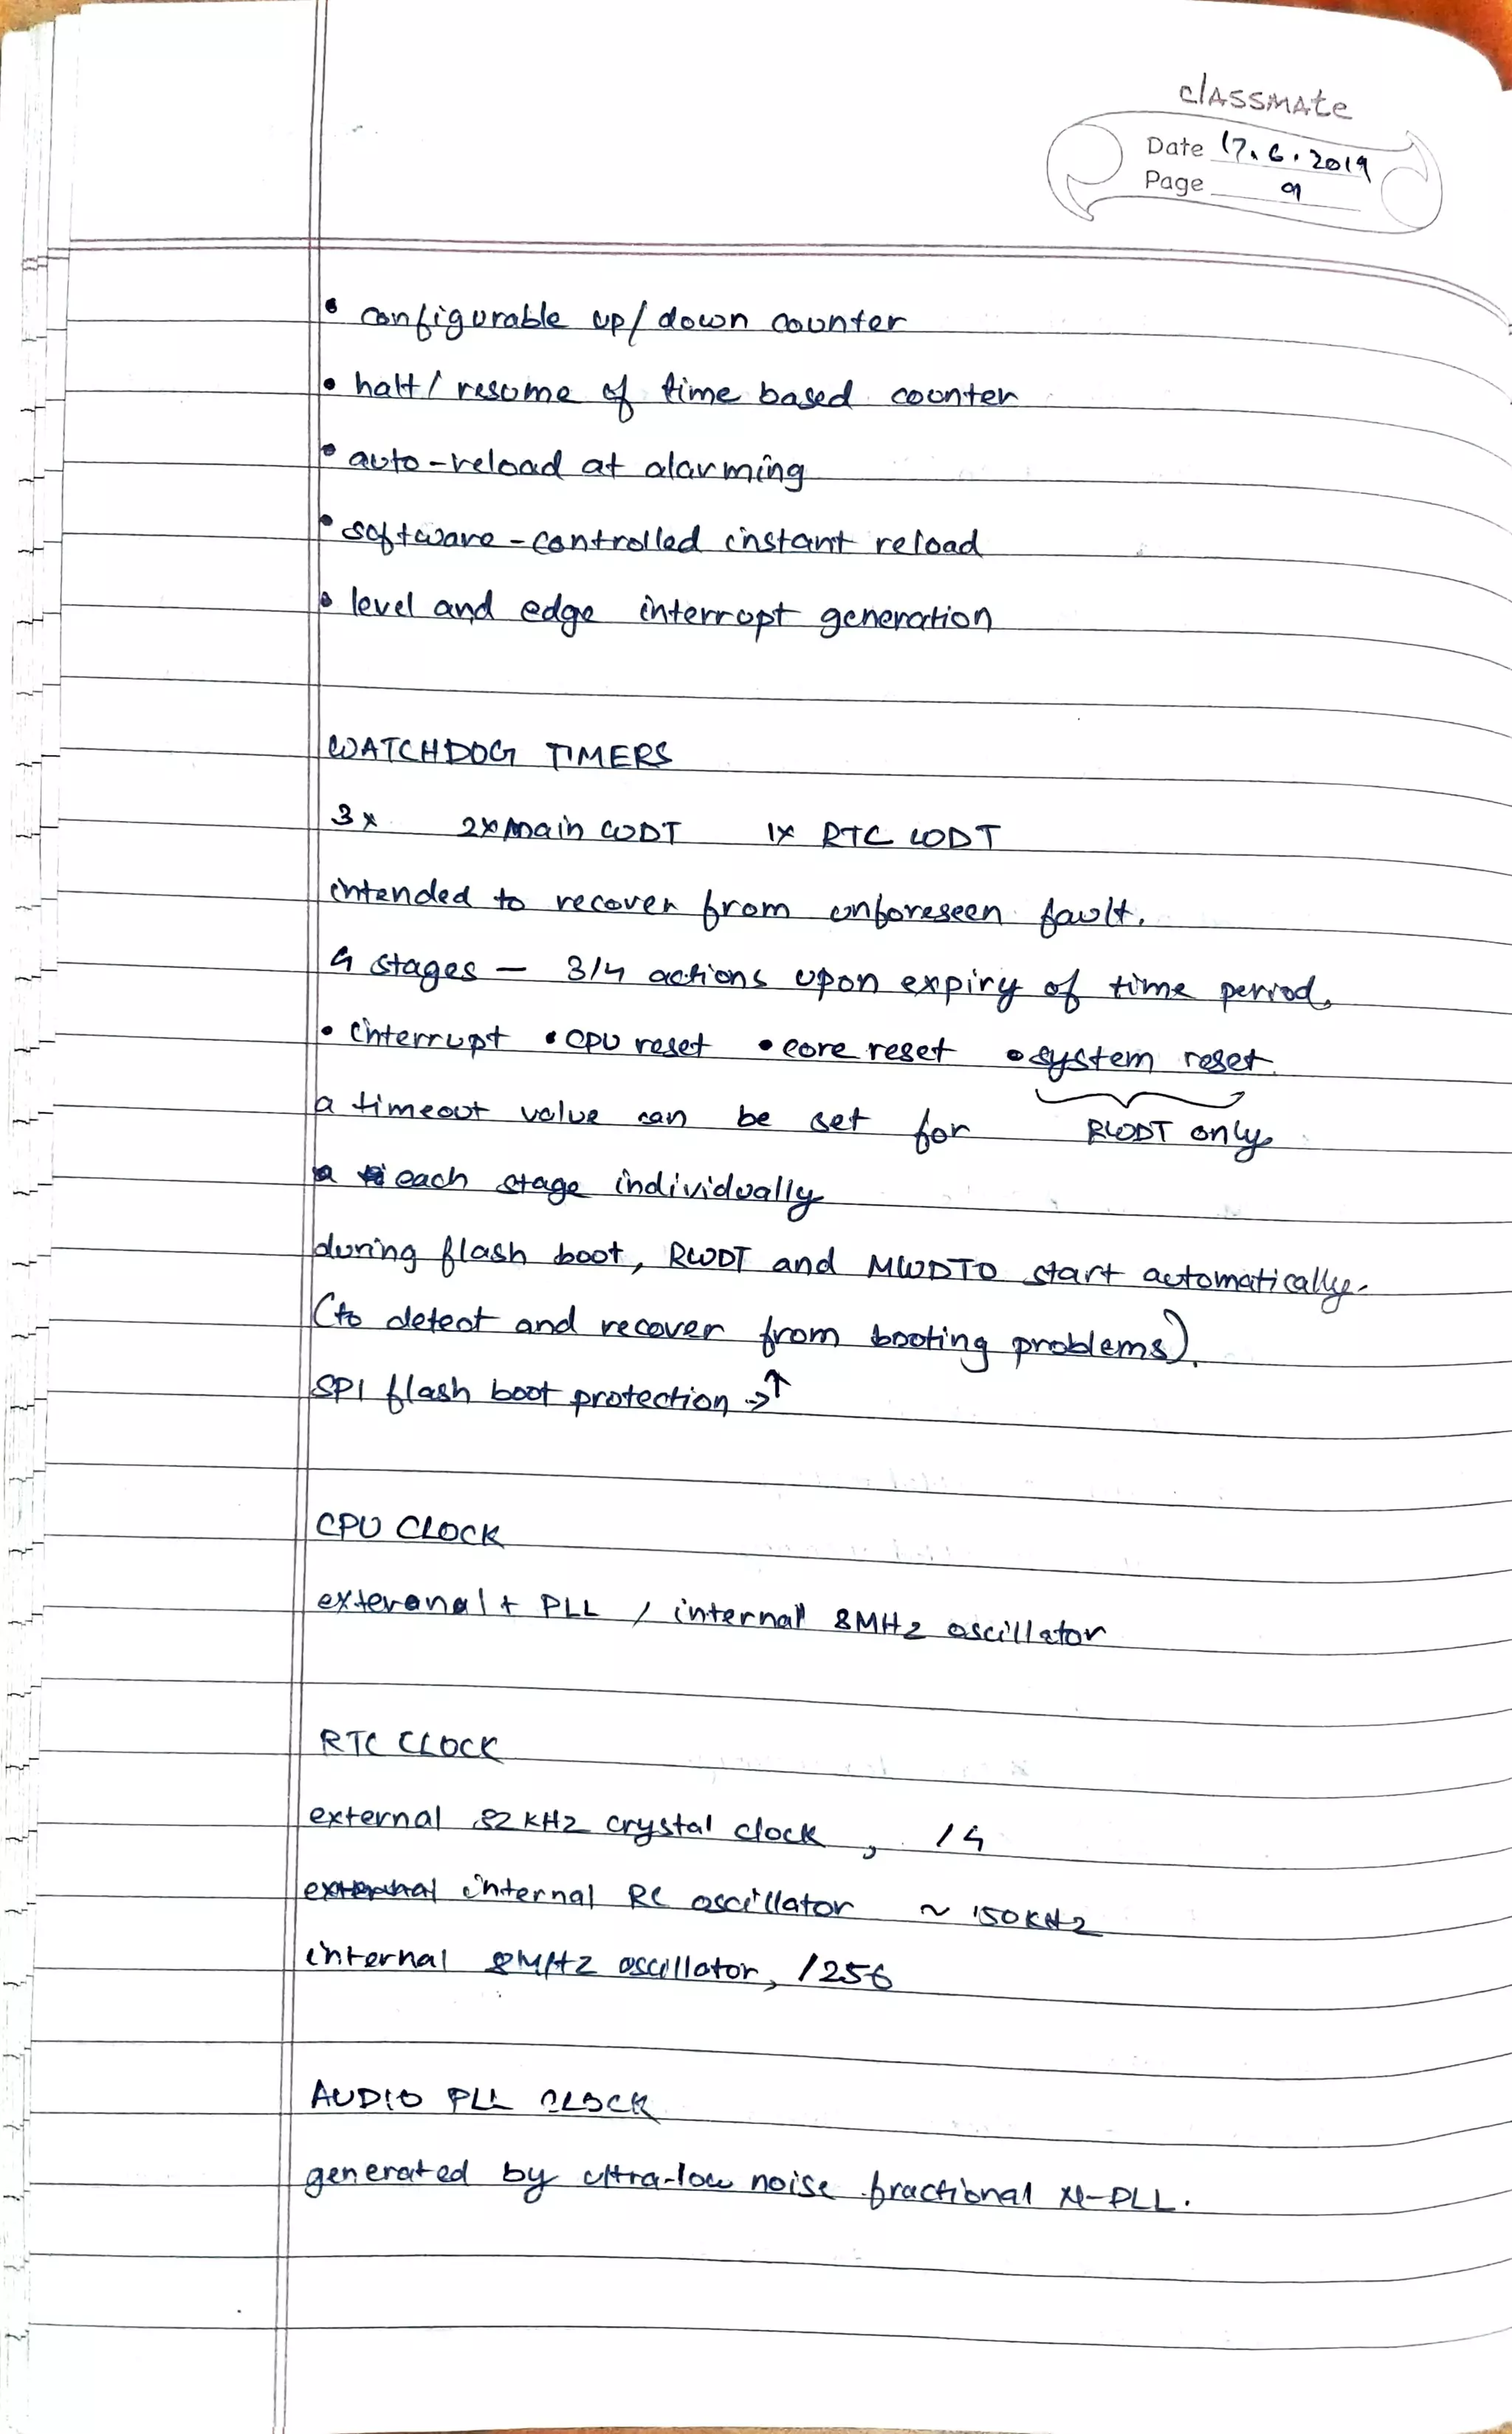 classmate
Date 17.6.2019
Page 9
• configurable up/down counter
• halt/resume of time based counter
• auto-reload at alarming
• software-controlled instant reload
• level and edge interrupt generation
WATCHDOG TIMERS
3x 2x main WDT 1x RTC WDT
intended to recover from unforeseen fault.
4 stages — 3/4 actions upon expiry of time period.
• interrupt • CPU reset • core reset • system reset.
a timeout value can be set for RWDT only
each stage individually
during flash boot, RWDT and MWDT0 start automatically.
(to detect and recover from booting problems).
SPI flash boot protection →↑
CPU CLOCK
exteranal + PLL / internal 8MHz oscillator
RTC CLOCK
external 32 KHz crystal clock, /4
external internal RC oscillator ~ 150KHz
internal 8MHz oscillator, /256
AUDIO PLL CLOCK
generated by ultra-low noise fractional N-PLL.